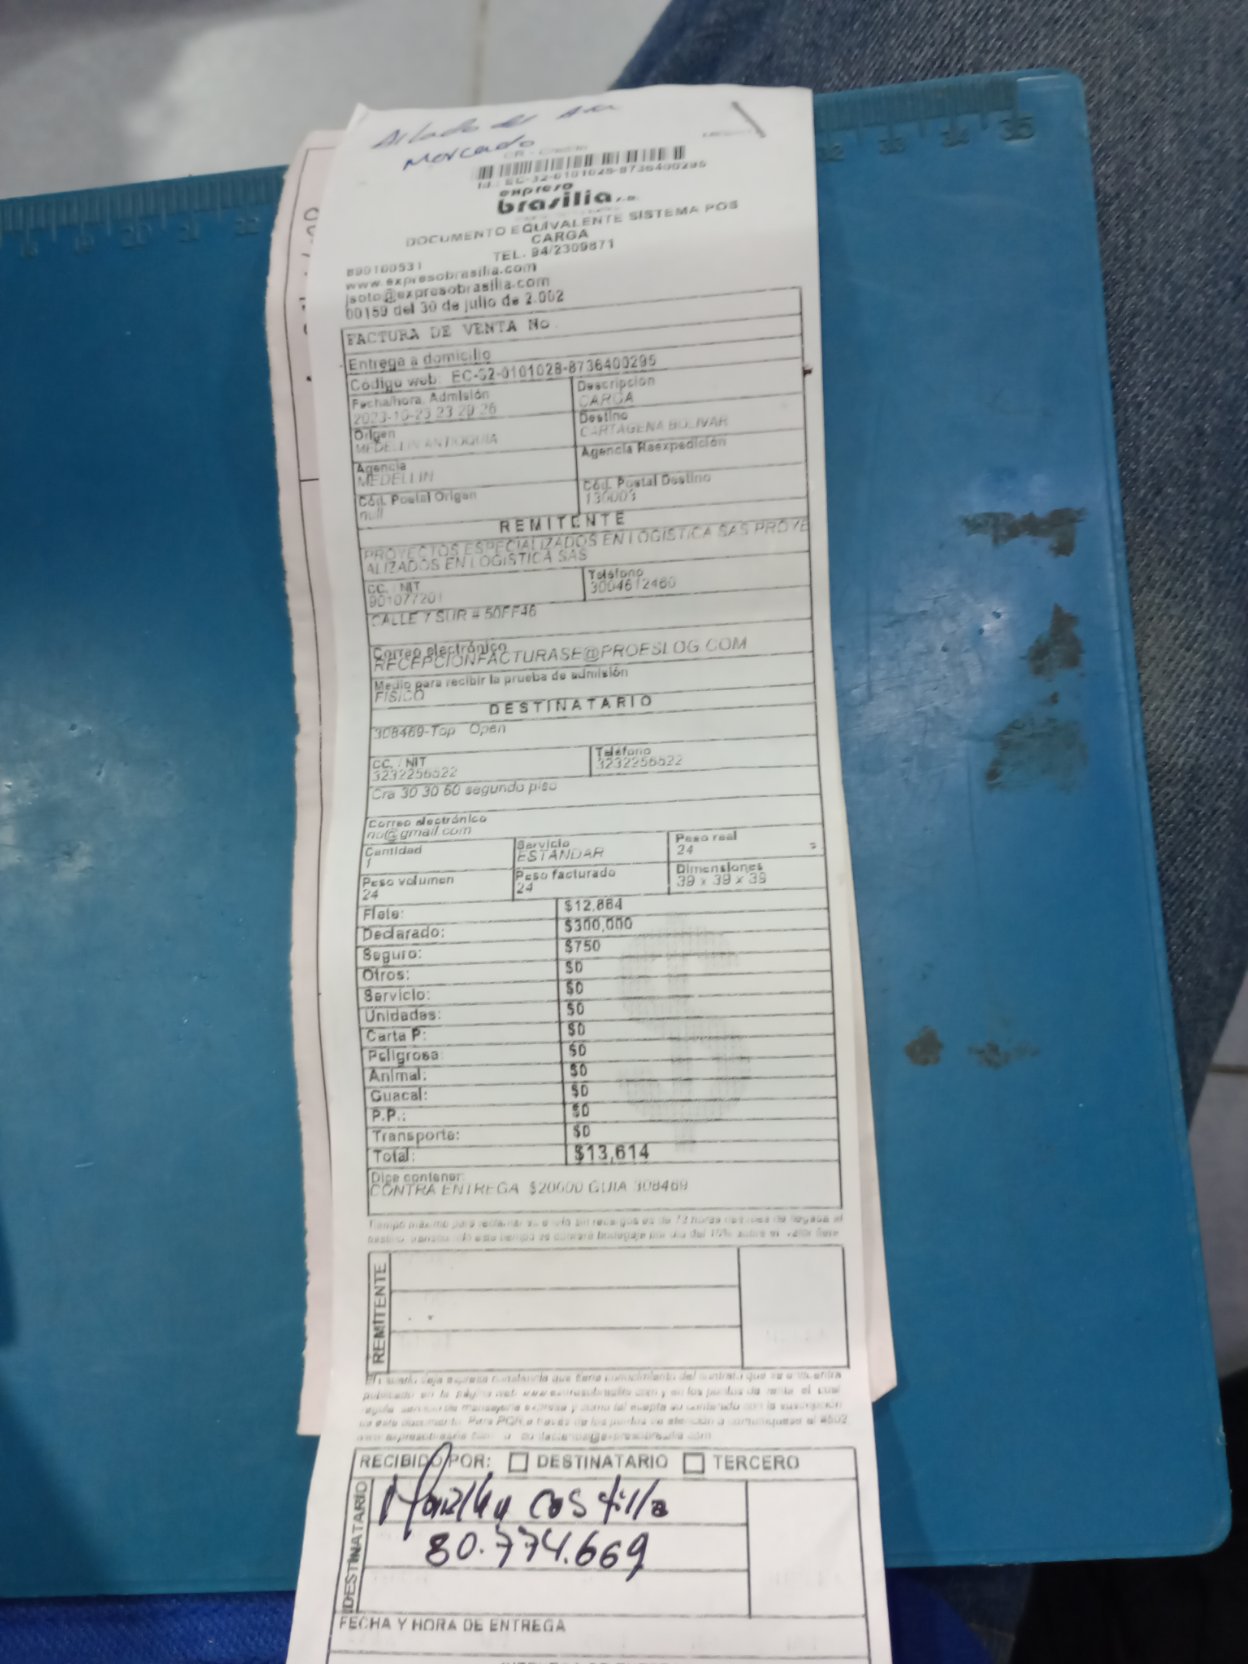 Mercado
Id.: EC-32-0101028-8736400295
expreso
brasilia s.a.
DOCUMENTO EQUIVALENTE SISTEMA POS
CARGA
TEL. 94/2309871
890100531
www.expresobrasilia.com
jsoto@expresobrasilia.com
00159 del 30 de julio de 2.002
FACTURA DE VENTA No
Entrega a domicilio
Código web: EC-32-0101028-8736400295
Fecha/hora. Admisión
2023-10-23 23:29:26
Descripción
CARGA
Origen
MEDELLIN ANTIOQUIA
Destino
CARTAGENA BOLIVAR
Agencia
MEDELLIN
Agencia Reexpedición
Cód. Postal Origen
null
Cód. Postal Destino
130003
REMITENTE
PROYECTOS ESPECIALIZADOS EN LOGISTICA SAS PROYE
ALIZADOS EN LOGISTICA SAS
CC. / NIT
901077201
Teléfono
3004612460
CALLE 7 SUR # 50FF46
Correo electrónico
RECEPCIONFACTURASE@PROESLOG.COM
Medio para recibir la prueba de admisión
FISICO
DESTINATARIO
308469-Top Open
CC. / NIT
3232256522
Teléfono
3232256522
Cra 30 30 60 segundo piso
Correo electrónico
no@gmail.com
Cantidad
1
Servicio
ESTANDAR
Peso real
24
Peso volumen
24
Peso facturado
24
Dimensiones
39 x 39 x 39
Flete: $12,864
Declarado: $300,000
Seguro: $750
Otros: $0
Servicio: $0
Unidades: $0
Carta P: $0
Peligrosa: $0
Animal: $0
Guacal: $0
P.P.: $0
Transporte: $0
Total: $13,614
Dice contener:
CONTRA ENTREGA $20000 GUIA 308469
REMITENTE
RECIBIDO POR: DESTINATARIO TERCERO
DESTINATARIO
costilla
80.774.669
FECHA Y HORA DE ENTREGA